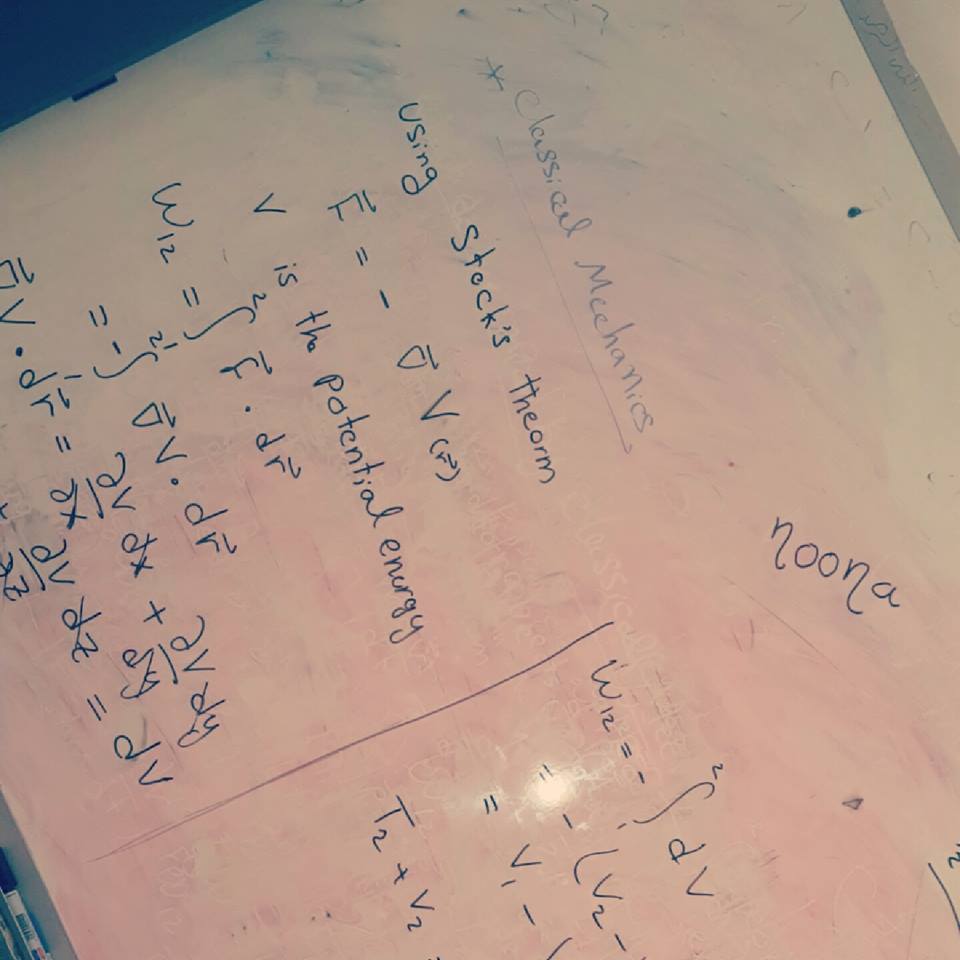 * Classical Mechanics
using Stock's theorm
F⃗ = - ∇⃗ V(r⃗)
V is the potential energy
W₁₂ = ∫₁² F⃗ · dr⃗
= - ∫₁² ∇⃗V · dr⃗
∇⃗V · dr⃗ = ∂V/∂x dx + ∂V/∂y dy
+ ∂V/∂z dz = dV
noona
W₁₂ = - ∫₁² dV
= - (V₂ -
= V₁ -
T₂ + V₂ =